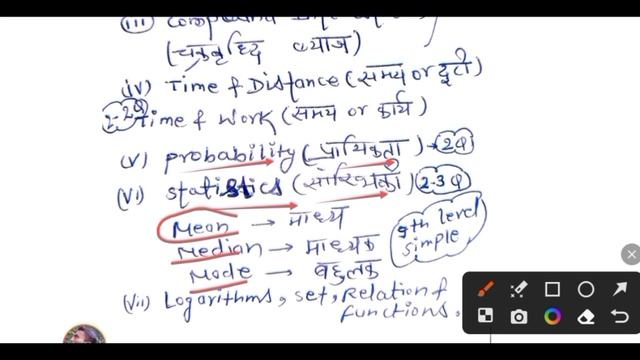 (iii) Compound
(चक्रवृद्धि व्याज)
(iv) Time & Distance (समय or दूरी)
2-2Q Time & Work (समय or कार्य)
(v) probability (प्रायिकता) → 2Q
(vi) statistics (सांख्यिकी) 2-3 Q
Mean → माध्य
Median → माध्यक
Mode → बहुलक
9th level simple
(vii) Logarithms, set, Relation & functions,